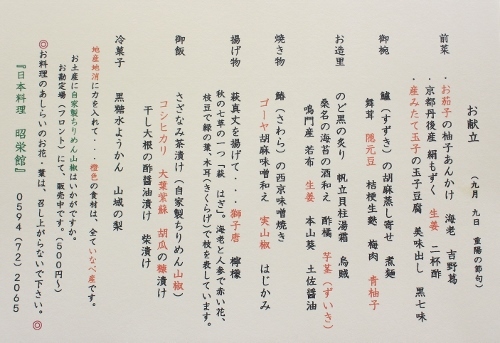 お献立　（九月　九日　重陽の節句）
前菜　・お茄子の柚子あんかけ　海老　吉野葛
・京都丹後産　絹もずく　生姜　二杯酢
・産みたて玉子の玉子豆腐　美味出し　黒七味
御椀　鱸（すずき）の胡麻蒸し寄せ　煮麺
舞茸　隠元豆　桔梗生麩　梅肉　青柚子
お造里　のど黒の炙り　帆立貝柱湯霜　烏賊
桑名の海苔の酒和え　酢橘　芋茎（ずいき）
鳴門産　若布　生姜　本山葵　土佐醤油
焼き物　鰆（さわら）の西京味噌焼き
ゴーヤ胡麻味噌和え　実山椒　はじかみ
揚げ物　萩真丈を揚げて・・・獅子唐　檸檬
秋の七草の一つ「萩　はぎ」。海老と人参で赤い花、
枝豆で緑の葉、木耳（きくらげ）で枝を表しています。
御飯　さざなみ茶漬け（自家製ちりめん山椒）
コシヒカリ　大葉紫蘇　胡瓜の糠漬け
干し大根の酢醤油漬け　柴漬け
冷菓子　黒糖水ようかん　山城の梨
地産地消に力を入れて・・・橙色の食材は、全ていなべ産です。
お土産に自家製ちりめん山椒はいかがですか。
お勘定場（フロント）にて、販売中です。（５００円～）
◎お料理のあしらいのお花・葉は、召し上がらないで下さい。◎
『日本料理　昭栄館』　０５９４（７２）２０６５